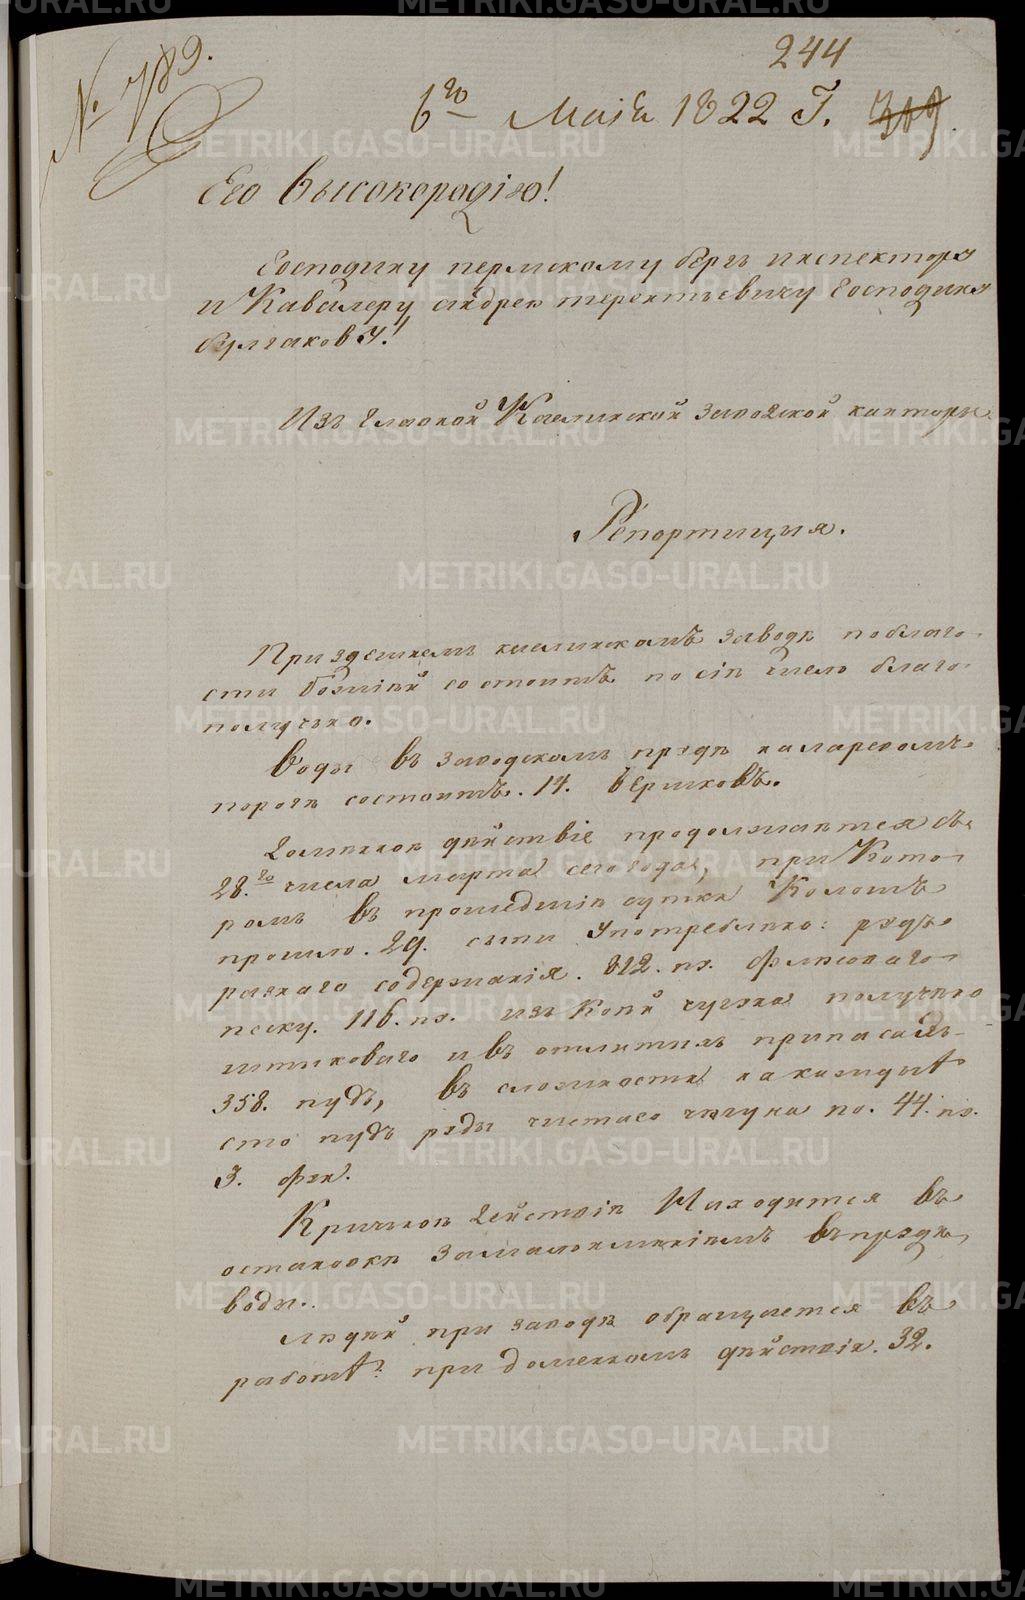 № 789.
244
6го Маія 1822 Г. 309.
Его высокородію!
Господину пермскому бергъ инспектору
и Кавалеру андрею терентьевичу Господину
булгакову!
Изъ Главной Каслинской заводской канторы
Репортиція.
При здешнемъ каслинскомъ заводе по благо-
сти божіей состоитъ по сіе число благо-
получно.
Воды въ заводскомъ пруде на ларевомъ
пороге состоитъ. 14. вершковъ.
Доменное действіе продолжается съ
28.го числа марта сего года, при Кото-
ромъ въ прошедшіе сутки Колошъ
прошло. 29. сыпи употреблено: рудъ
разнаго содержанія. 812. пу. флюсоваго
песку. 116. пу. изъ коей чугуна получено
штыковаго и въ отлитыхъ припасахъ
358. пудъ, въ сложности на каждыя
сто пудъ руды чистаго чугуна по. 44. пу.
3. фун.
Кричное действіе Находится въ
остановке за малоимениемъ въ пруде
воды.
людей при заводе обращается въ
работѣ: при доменномъ действіи. 32.
METRIKI.GASO-URAL.RU